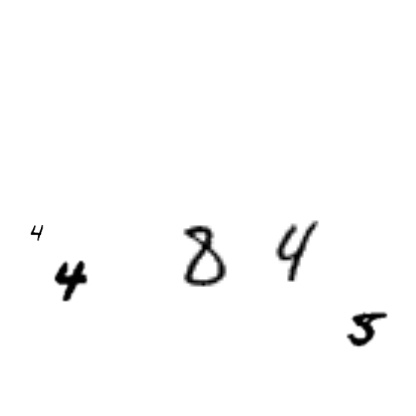 4 4 8 4 5